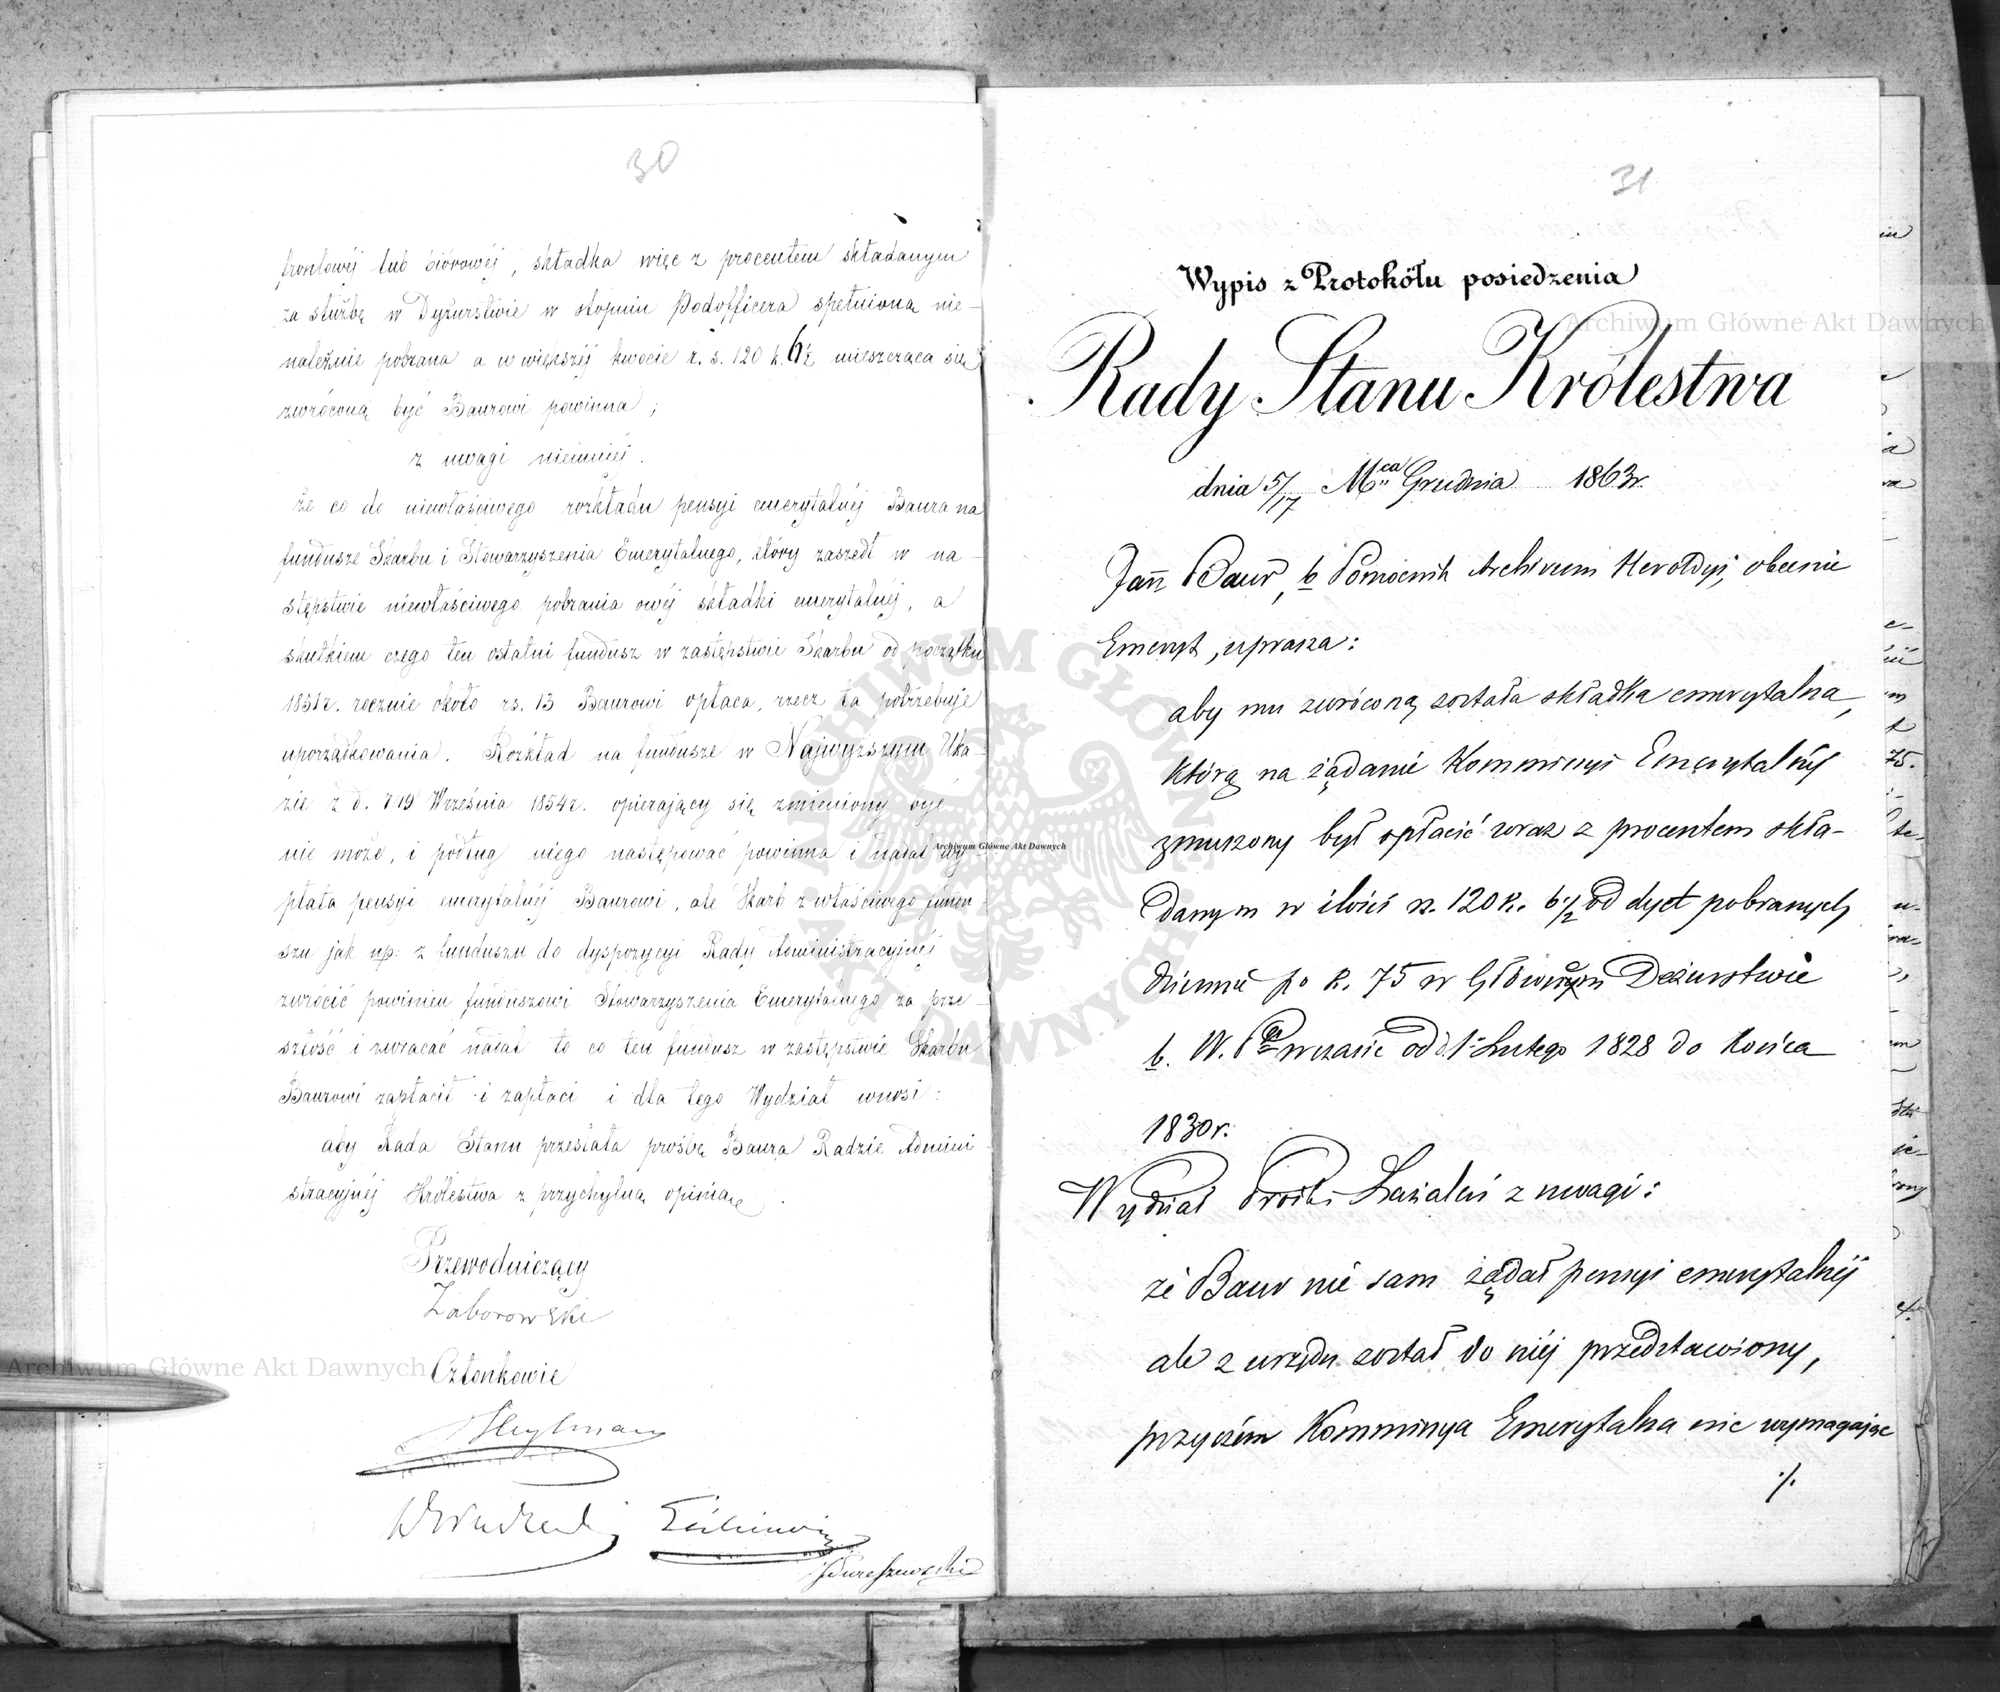 30
frontowéj lub biórowéj, składka więc z procentem składanym
za służbę w Dyżurstwie w stopniu Podofficera spełnioną nie-
należnie pobrana a w większéj kwocie r. s. 120 k. 6½ mieszcząca się
zwróconą być Baurowi powinna ;
z uwagi niemniéj.
że co do niewłaściwego rozkładu pensyi emerytalnéj Baura na
fundusze Skarbu i Stowarzyszenia Emerytalnego, który zaszedł w na-
stępstwie niewłaściwego pobrania owéj składki emerytalnéj, a
skutkiem czego ten ostatni fundusz w zastępstwie Skarbu od początku
1851r. rocznie około rs. 13 Baurowi opłaca, rzecz ta potrzebuje
uporządkowania. Rozkład na fundusze w Najwyższym Uka-
zie z d. 7/19 Września 1854r. opierający się zmieniony być
nie może, i podług niego następować powinna i nadal wy-
płata pensyi emerytalnéj Baurowi, ale Skarb z właściwego fundu-
szu jak np: z funduszu do dyspozycyi Rady Administracyjnéj
zwrócić powinien funduszowi Stowarzyszenia Emerytalnego za prze-
szłość i zwracać nadal to co ten fundusz w zastępstwie Skarbu
Baurowi zapłacił i zapłaci i dla tego Wydział wnosi:
aby Rada Stanu przesłała prośbę Baura Radzie Admini-
stracyjnéj Królestwa z przychylną opinią.
Przewodniczący
Zaborowski
Członkowie
Heylman
31
Wypis z Protokółu posiedzenia
Rady Stanu Królestwa
dnia 5/17 Mca Grudnia 1863r.
Jan Baur, b Pomocnik Archiwum Heroldyi, obecnie
Emeryt, uprasza:
aby mu zwróconą została składka emerytalna,
którą na żądanie Kommissyi Emerytalnéj
zmuszony był opłacić wraz z procentem skła-
danym w ilości rs. 120 k. 6½ od dyet pobranych
dziennie po k. 75 w Głównym Deżurstwie
b. W. P. w czasie od d. 1 Lutego 1828 do końca
1830r.
Wydział Próśb i Zażaleń z uwagi:
że Baur nie sam żądał pensyi emerytalnéj
ale z urzędu został do niéj przedstawiony,
przyczém Kommissya Emerytalna nie wymagając
./.
Archiwum Główne Akt Dawnych
Archiwum Główne Akt Dawnych
Archiwum Główne Akt Dawnych
ARCHIWUM GŁÓWNE AKT DAWNYCH